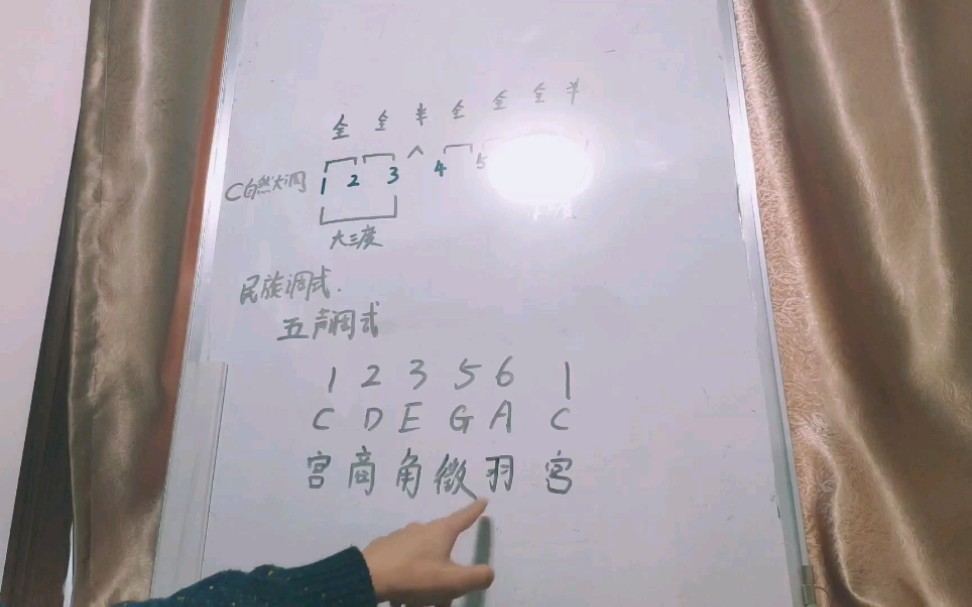 全 全 半 全 全 全 半
C自然大调 1 2 3 4 5
大三度
民族调式.
五声调式
1 2 3 5 6 1
C D E G A C
宫 商 角 徵 羽 宫